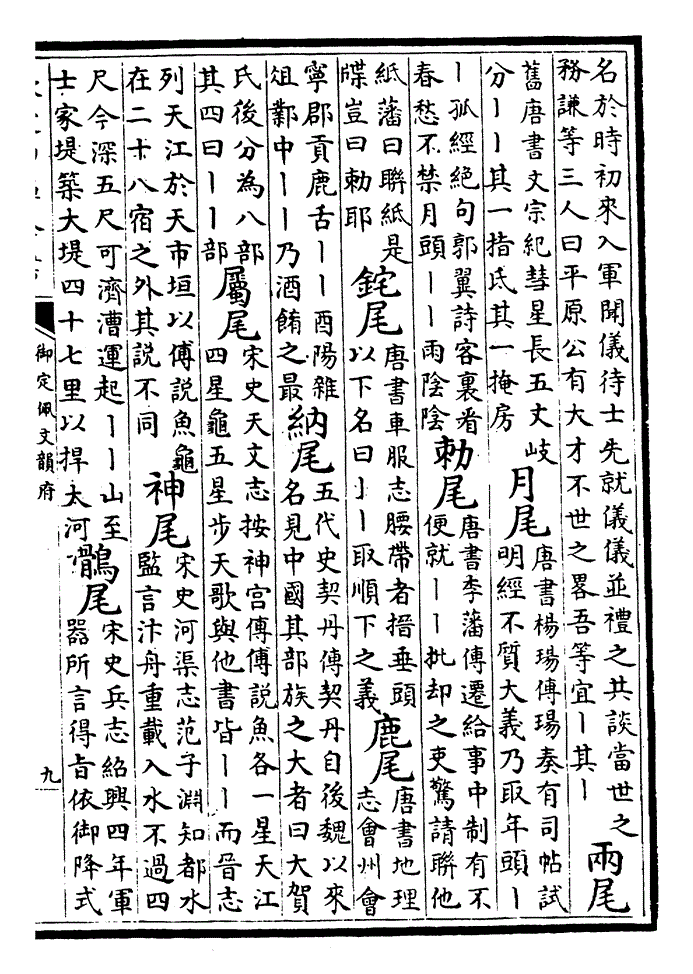 名於時初來入軍聞儀待士先就儀儀並禮之共談當世之
務謙等三人曰平原公有大才不世之畧吾等宜丨其丨
兩尾
舊唐書文宗紀彗星長五丈岐
分丨丨其一指氐其一掩房
月尾
唐書楊瑒傳瑒奏有司帖試
明經不質大義乃取年頭丨
丨孤經絕句郭翼詩客裏看
春愁不禁月頭丨丨雨陰陰
勅尾
唐書李藩傳遷給事中制有不
便就丨丨批却之吏驚請聯他
紙藩曰聯紙是
牒豈曰勅耶
鉈尾
唐書車服志腰帶者搢垂頭
以下名曰丨丨取順下之義
鹿尾
唐書地理
志會州會
寧郡貢鹿舌丨丨酉陽雜
俎鄴中丨丨乃酒餚之最
納尾
五代史契丹傳契丹自後魏以來
名見中國其部族之大者曰大賀
氏後分為八部
其四曰丨丨部
屬尾
宋史天文志按神宮傅傅說魚各一星天江
四星龜五星步天歌與他書皆丨丨而晉志
列天江於天市垣以傅說魚龜
在二十八宿之外其說不同
神尾
宋史河渠志范子淵知都水
監言汴舟重載入水不過四
尺今深五尺可濟漕運起丨丨山至
士家堤築大堤四十七里以捍大河
鶻尾
宋史兵志紹興四年軍
器所言得旨依御降式
御定佩文韻府
九